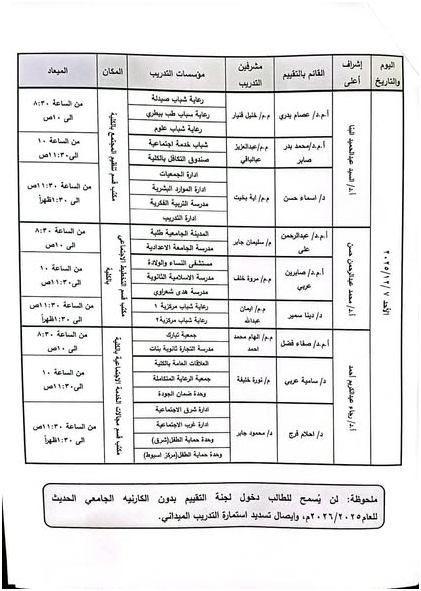 اليوم والتاريخ
إشراف أعلى
القائم بالتقييم
مشرفين التدريب
مؤسسات التدريب
المكان
الميعاد
الأحد ٧ /٢٠٢٥/١٢
أ.د/ السيد عبدالحميد البنا
أ.م.د/ عصام بدري
م.م/ خليل قنبار
رعاية شباب صيدلة
رعاية سباب طب بيطري
رعاية شباب علوم
مكتب قسم تنظيم المجتمع بالكلية
من الساعة ٨:٣٠
الى ١٠ص
أ.م.د/محمد بدر صابر
م.م/عبدالعزيز عبدالباقي
شباب خدمة اجتماعية
صندوق التكافل بالكلية
من الساعة ١٠
الى ١١:٣٠ص
د/ اسماء حسن
م.م/ اية بخيت
ادارة الجمعيات
ادارة الموارد البشرية
مدرسة التربية الفكرية
ادارة التدريب
من الساعة ١١:٣٠ص
الى ١:٣٠ظهراً
أ.د/ محمد عبدالرحمن حسن
أ.م.د/ عبدالرحمن على
م/ سليمان جابر
المدينة الجامعية طلبة
مدرسة الجامعة الاعدادية
مكتب قسم التخطيط الاجتماعي بالكلية
من الساعة ٨:٣٠
الى ١٠ص
أ.م.د/ صابرين عربي
م.م/ مروة خلف
مستشفى النساء والولادة
مدرسة الاسلامية الثانوية
مدرسة هدى شعراوي
من الساعة ١٠
الى ١١:٣٠ص
د/ دينا سمير
م.م/ ايمان عبدالله
رعاية شباب مركزية ١
رعاية شباب مركزية ٢
من الساعة ١١:٣٠ص
الى ١:٣٠ظهراً
أ.د/ رجاء عبدالكريم أحمد
أ.م.د/ صفاء فضل
م.م/ الهام محمد احمد
جمعية تبارك
مدرسة التجارة ثانوية بنات
مكتب قسم مجالات الخدمة الاجتماعية بالكلية
من الساعة ٨:٣٠
الى ١٠ص
د/ سامية عربي
م/ نورة خليفة
العلاقات العامة بالكلية
جمعية الرعاية المتكاملة
وحدة ضمان الجودة
من الساعة ١٠
الى ١١:٣٠ص
د/ احلام فرج
د/ محمود جابر
ادارة شرق الاجتماعية
ادارة غرب الاجتماعية
وحدة حماية الطفل(شرق)
وحدة حماية الطفل(مركز اسيوط)
من الساعة ١١:٣٠ص
الى ١:٣٠ظهراً
ملحوظة: لن يُسمح للطالب دخول لجنة التقييم بدون الكارنيه الجامعي الحديث
للعام٢٠٢٦/٢٠٢٥م، وإيصال تسديد استمارة التدريب الميداني.